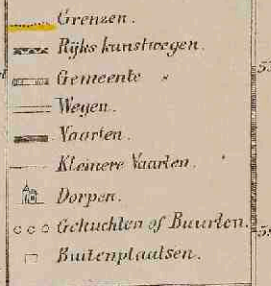 Grenzen.
Rijks kunstwegen.
Gemeente "
Wegen.
Vaarten.
Kleinere Vaarten.
Dorpen.
Gehuchten of Buurten.
Buitenplaatsen.